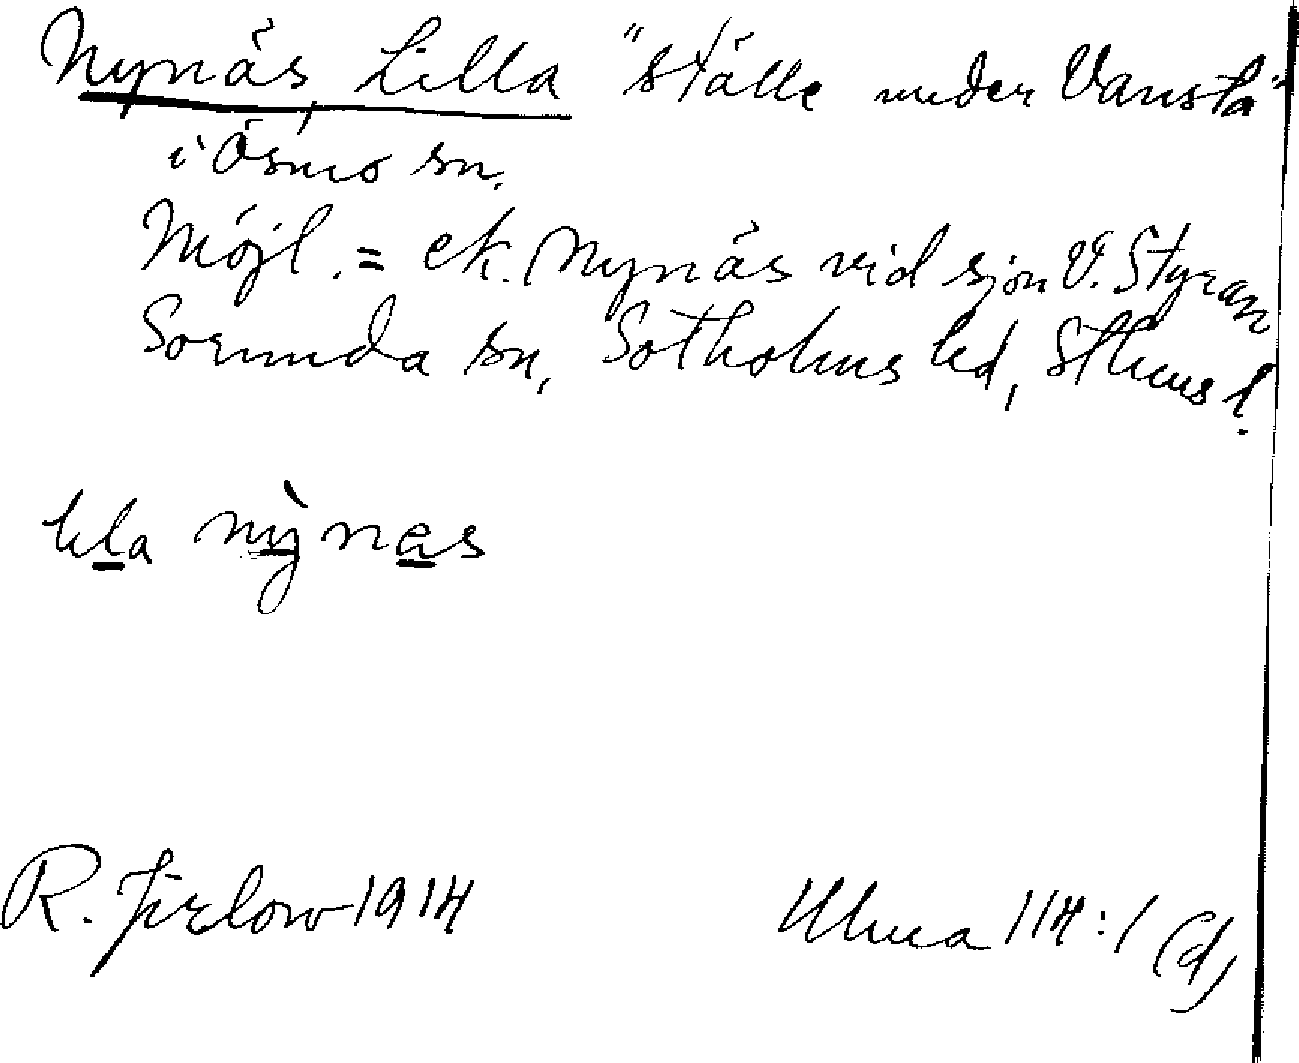 Nynäs, Lilla "ställe under Vansta"
i Ösmo sn.
Möjl. = ek. Nynäs vid sjön V. Styran
Sorunda sn, Sotholms hd, Sthms l.
lila nỳnes
R. Jirlow 1914
Uluma 114:1 (d)